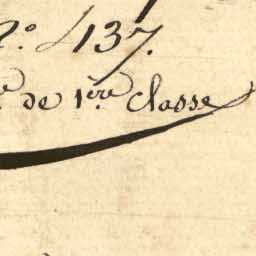 N.º 437.
de 1.ère Classe